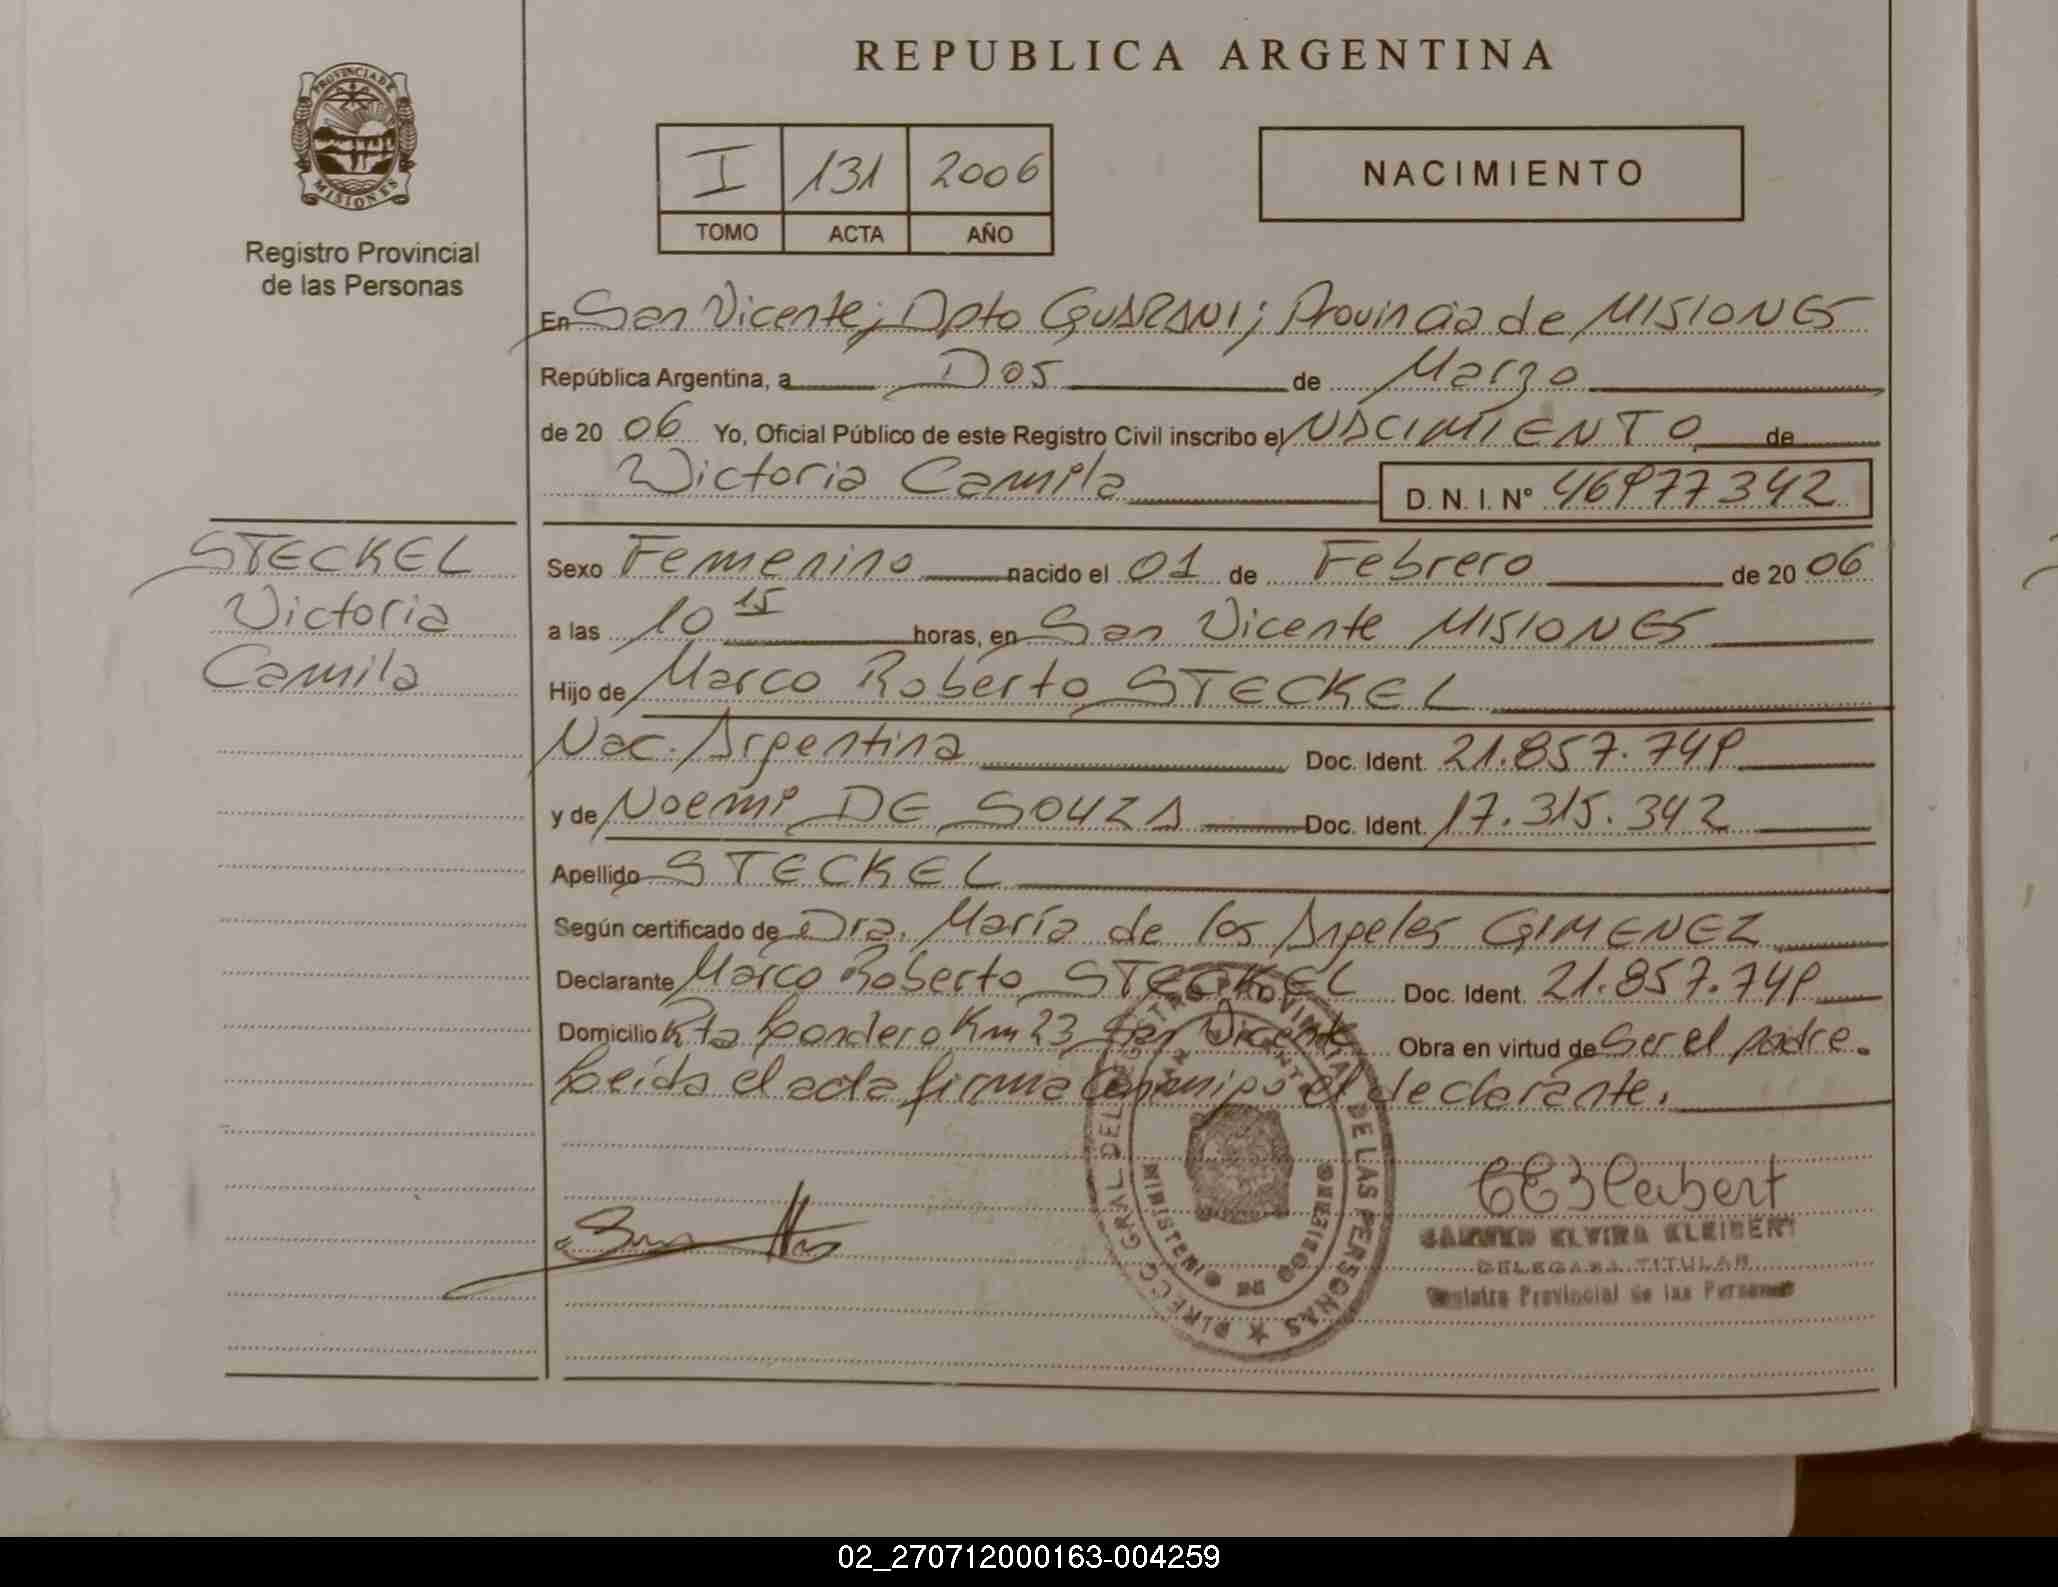 REPUBLICA ARGENTINA
PROVINCIA DE
MISIONES
Registro Provincial
de las Personas
I 131 2006
TOMO ACTA AÑO
NACIMIENTO
En San Vicente; Dpto GUARANI; Provincia de MISIONES
República Argentina, a Dos de Marzo
de 20 06 Yo, Oficial Público de este Registro Civil inscribo el NACIMIENTO de
Victoria Camila D. N. I. N° 46977342
STECKEL
Victoria
Camila
Sexo Femenino nacido el 01 de Febrero de 20 06
a las 10 15 horas, en San Vicente MISIONES
Hijo de Marco Roberto STECKEL
Nac. Argentina Doc. Ident. 21.857.749
y de Noemi DE SOUZA Doc. Ident. 17.315.342
Apellido STECKEL
Según certificado de Dra. María de los Angeles GIMENEZ
Declarante Marco Roberto STECKEL Doc. Ident. 21.857.749
Domicilio Rta Londero Km 23 San Vicente Obra en virtud de Ser el padre.
Leida el acta firma Conmigo el declarante.
DIRECC GRAL DEL REGISTRO PROVINCIAL DE LAS PERSONAS
MINISTERIO DE GOBIERNO
SAN VICENTE
CEKleibert
CARMEN ELVIRA KLEIBERT
DELEGADA TITULAR
Registro Provincial de las Personas
02_270712000163-004259